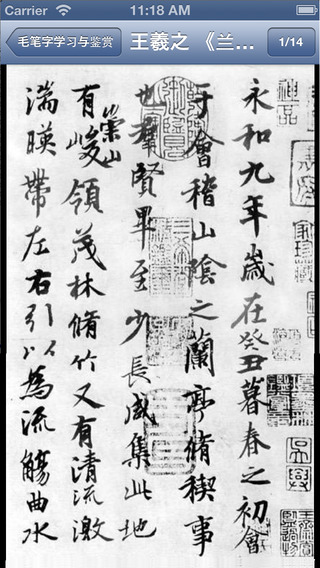 Carrier 11:18 AM
毛笔字学习与鉴赏 王羲之 《兰... 1/14
永和九年歲在癸丑暮春之初會
于會稽山陰之蘭亭脩稧事
也羣賢畢至少長咸集此地
有崇山峻領茂林脩竹又有清流激
湍暎帶左右引以為流觴曲水